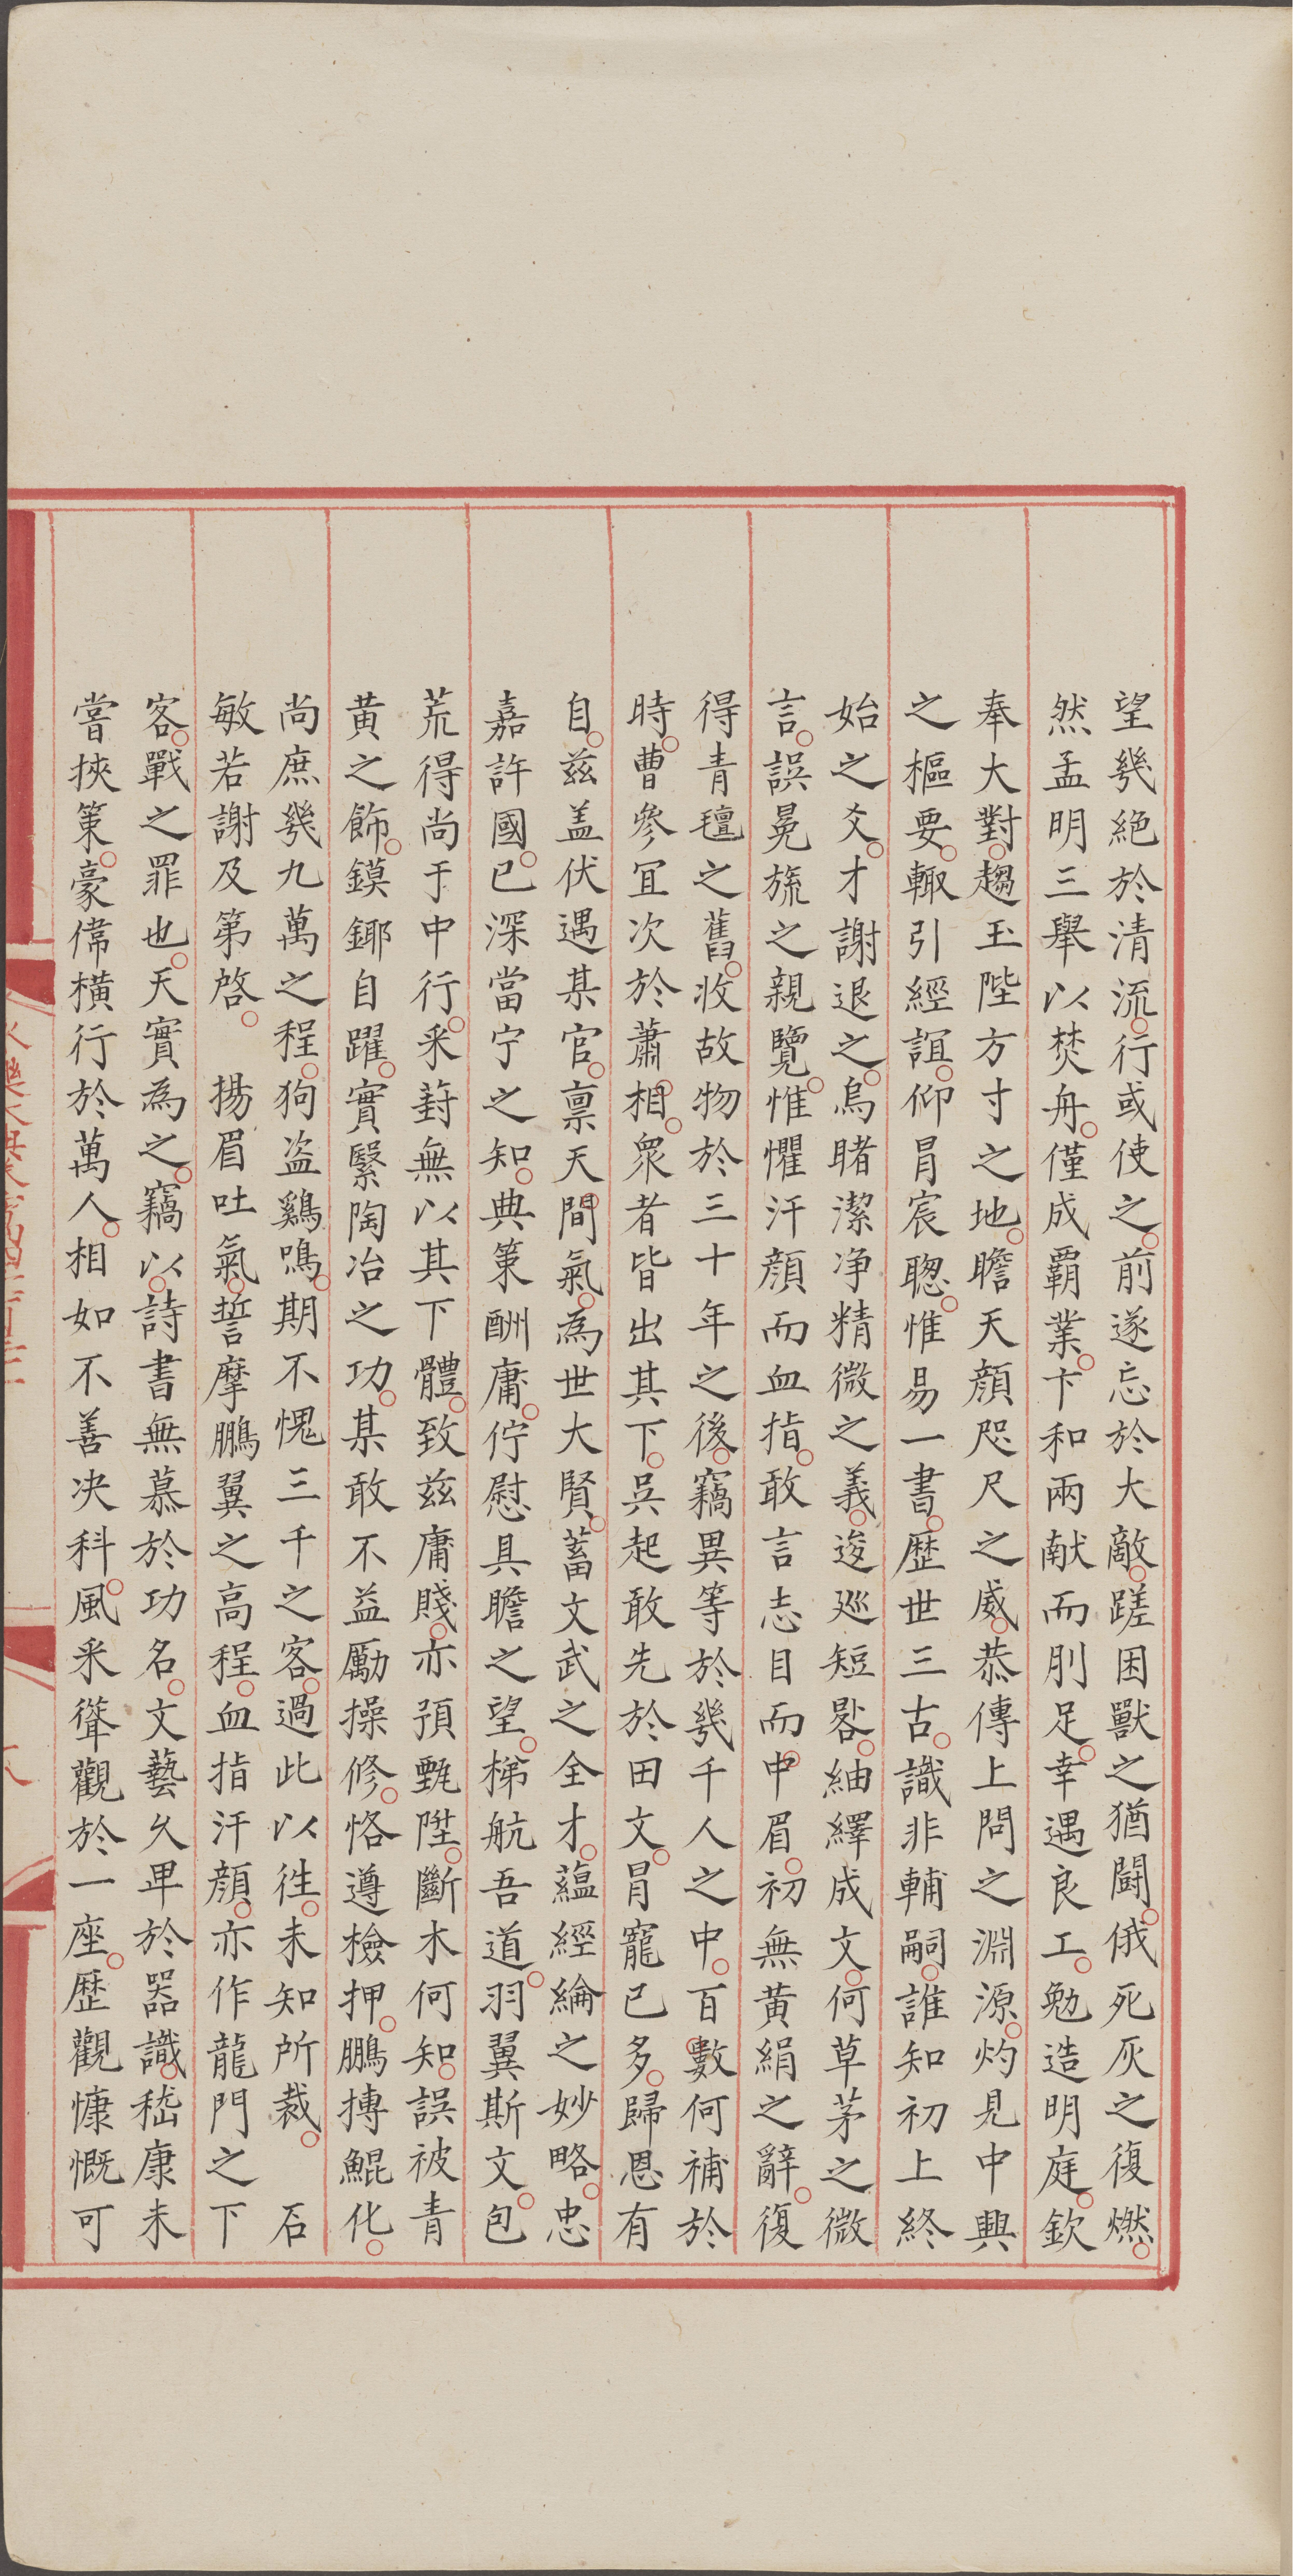 望幾絕於清流行或使之前遂忘於大敵蹉困獸之猶鬪俄死灰之復燃
然孟明三舉以焚舟僅成覇業卞和兩献而刖足幸遇良工勉造明庭欽
奉大對趨玉陛方寸之地瞻天顔咫尺之威恭傳上問之淵源灼見中興
之樞要輙引經誼仰冐宸聰惟易一書歷世三古識非輔嗣誰知初上終
始之爻才謝退之烏睹潔净精微之義逡廵短晷紬繹成文何草茅之微
言誤冕旒之親覽惟懼汗顔而血指敢言志目而中眉初無黃絹之辭復
得青氊之舊收故物於三十年之後竊異等於幾千人之中百數何補於
時曹參冝次於蕭相衆者皆出其下吳起敢先於田文冐寵已多歸恩有
自兹盖伏遇某官禀天間氣為世大賢蓄文武之全才蘊經綸之妙略忠
嘉許國已深當宁之知典策酬庸佇慰具瞻之望梯航吾道羽翼斯文包
荒得尚于中行采葑無以其下體致兹庸賤亦預甄陞斷木何知誤被青
黃之飾鏌鎁自躍實緊陶冶之功某敢不益勵操修恪遵檢押鵬摶鯤化
尚庶幾九萬之程狗盗鷄鳴期不愧三千之客過此以徃未知所裁　石
敏若謝及第啓　揚眉吐氣誓摩鵬翼之高程血指汗顔亦作龍門之下
客戰之罪也天實為之竊以詩書無慕於功名文藝久畀於器識嵇康未
嘗挾策豪偉横行於萬人相如不善决科風采聳觀於一座歷觀慷慨可